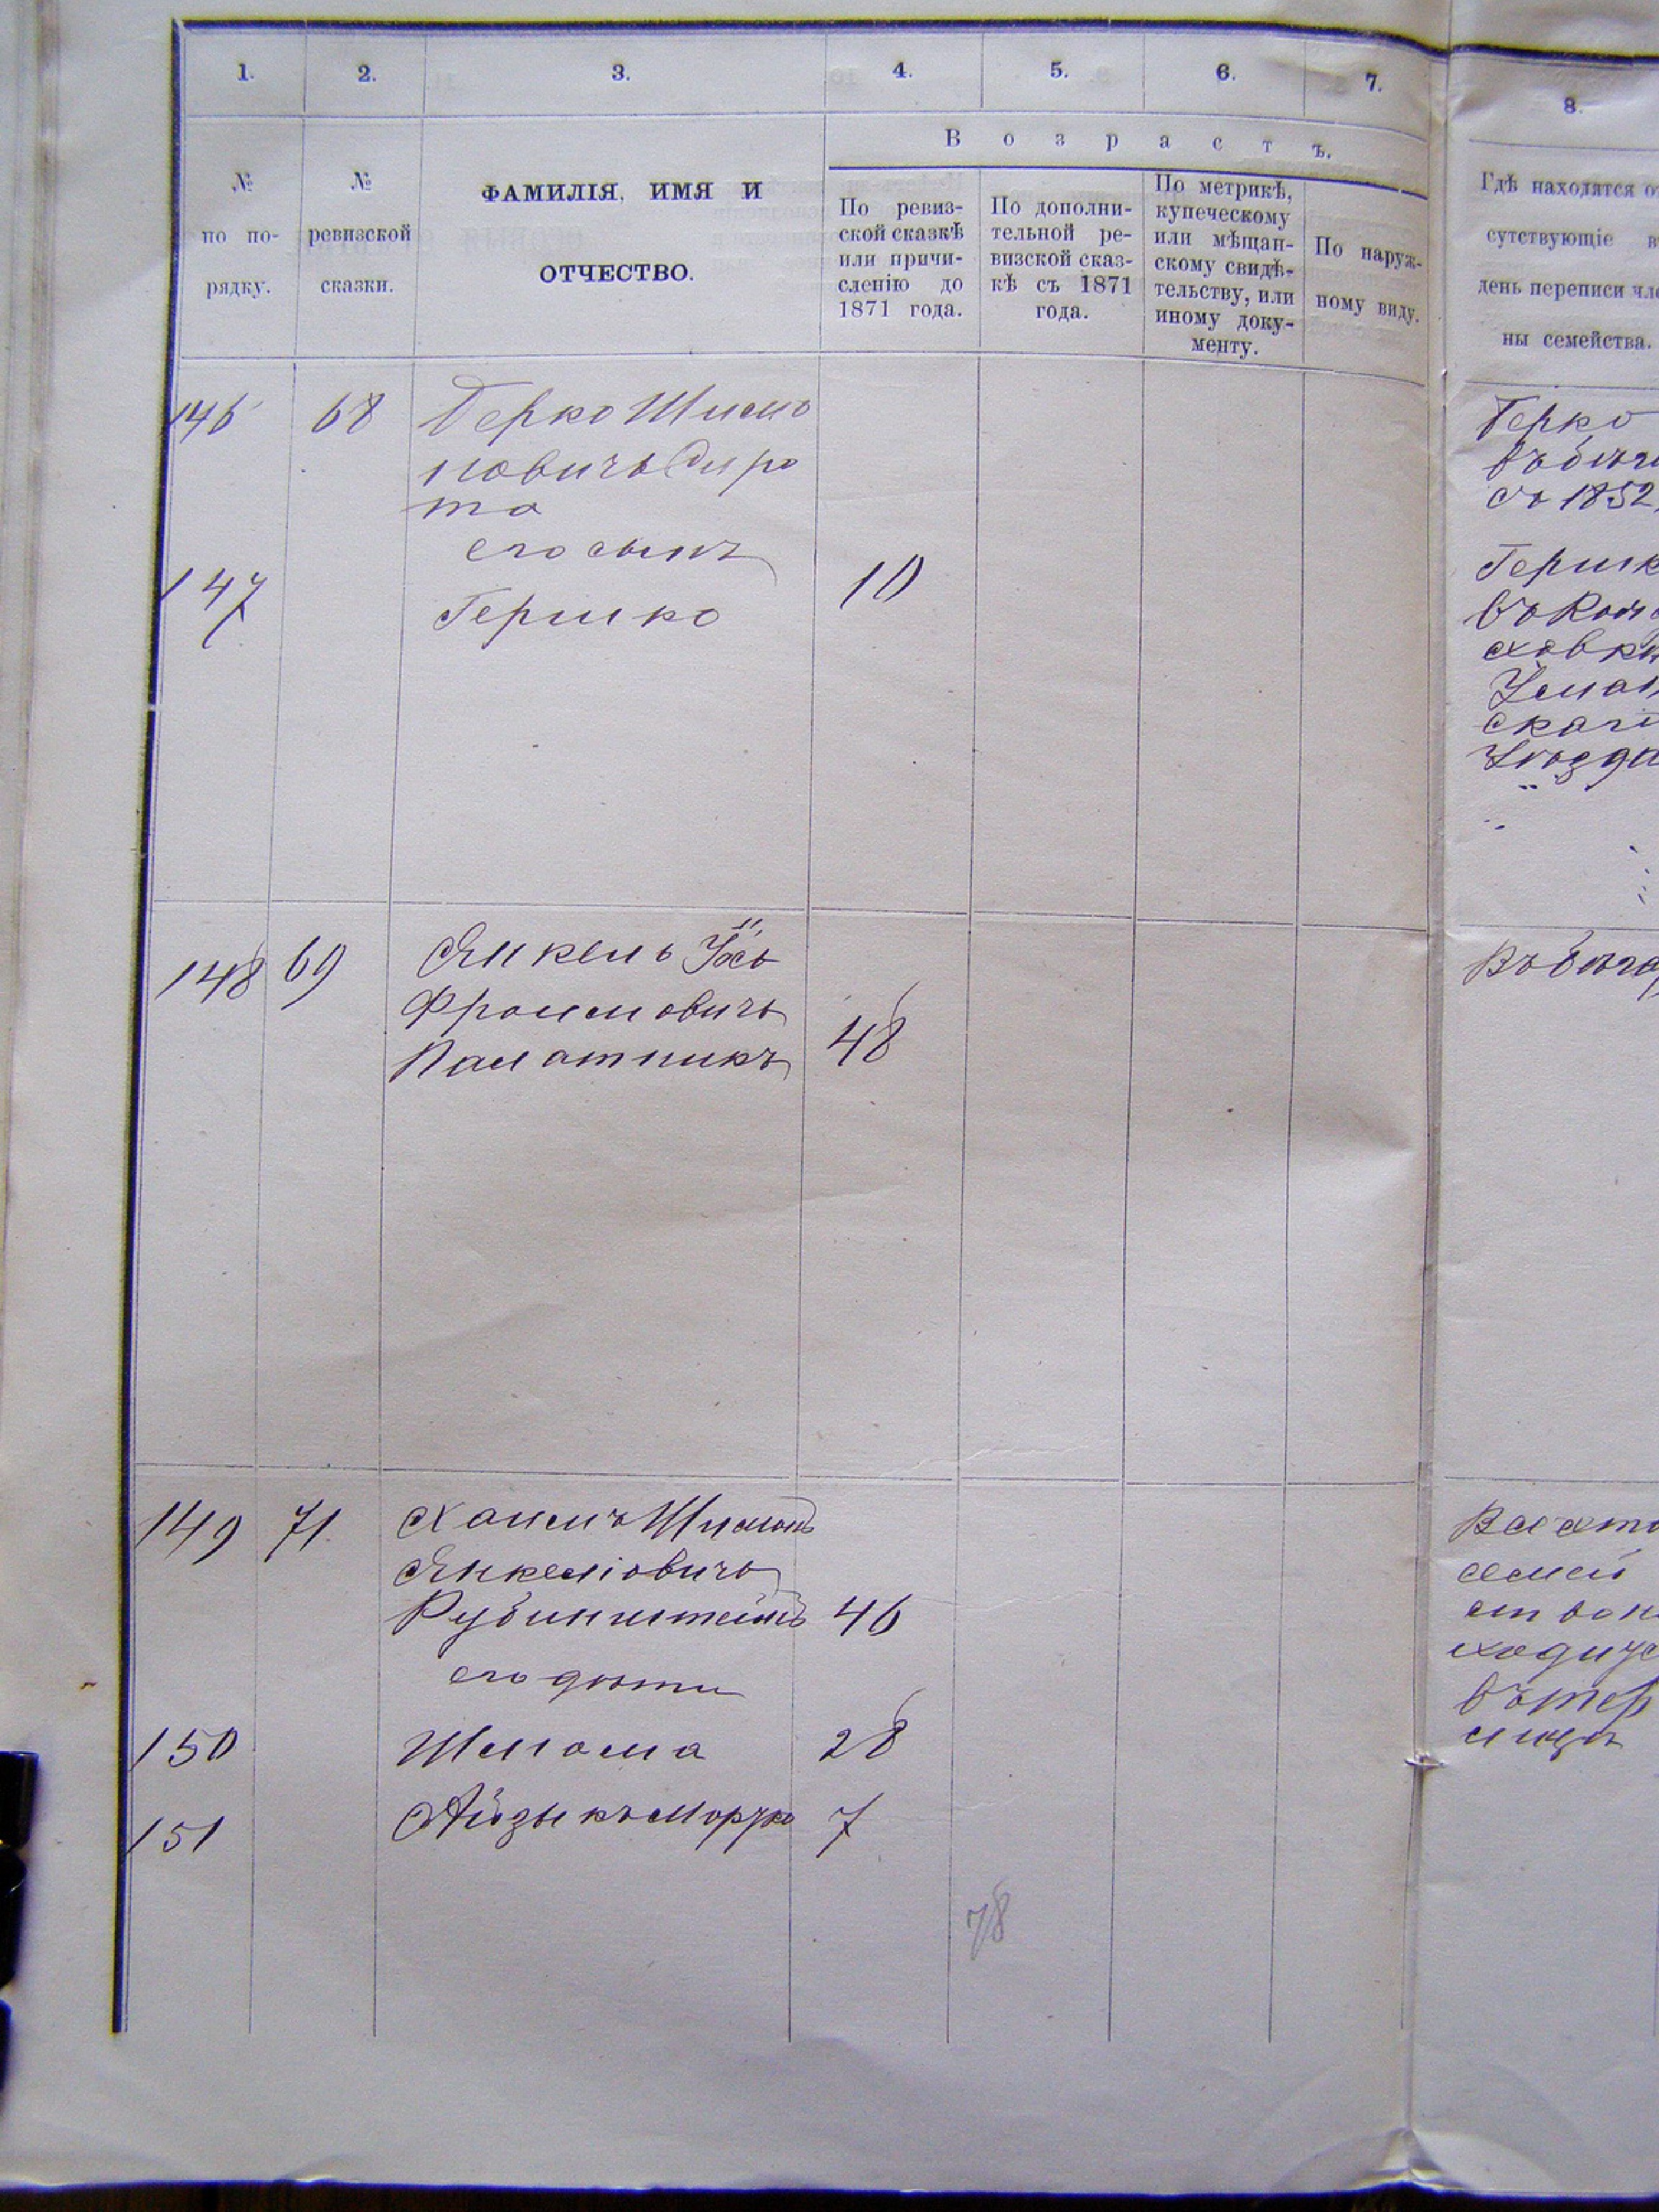 1. 2. 3. 4. 5. 6. 7. 8.
Возрастъ.
№
по по-
рядку.
№
ревизской
сказки.
ФАМИЛІЯ, ИМЯ И
ОТЧЕСТВО.
По ревиз-
ской сказкѣ
или причи-
сленію до
1871 года.
По дополни-
тельной ре-
визской сказ-
кѣ съ 1871
года.
По метрикѣ,
купеческому
или мѣщан-
скому свидѣ-
тельству, или
иному доку-
менту.
По наруж-
ному виду.
Гдѣ находятся от
сутствующіе въ
день переписи чле
ны семейства.
146 68 Берко Шимо
новичъ Сиро
та
его сынъ
147 Гершко 10
Берко
въ бѣга
съ 1852
Гершк
Уман
скаго
Уѣзда
148 69 Янкель Іось
Фроимовичъ
Паматникъ 48
Въ бѣга
149 71. Хаимъ Шимонъ
Янкеліовичъ
Рубинштейнъ 46
его дѣти
150 Шлома 28
151 Айзыкъ Мордко 7
семей
ство н
78